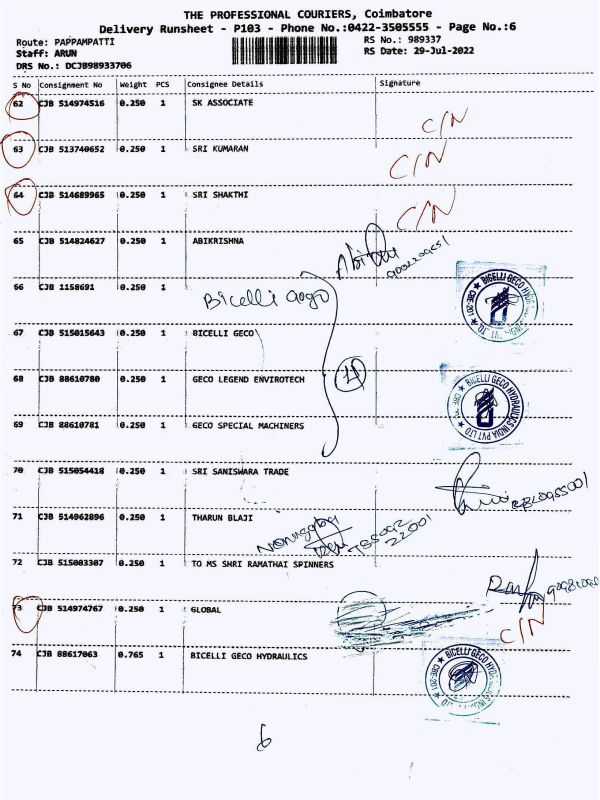 THE PROFESSIONAL COURIERS, Coimbatore
Delivery Runsheet - P103 - Phone No.:0422-3505555 - Page No.:6
Route: PAPPAMPATTI RS No.: 989337
Staff: ARUN RS Date: 29-Jul-2022
DRS No.: DCJB98933706
S No Consignment No Weight PCS Consignee Details Signature
62 CJB 514974516 0.250 1 SK ASSOCIATE C/N
63 CJB 513740652 0.250 1 SRI KUMARAN C/N
64 CJB 514689965 0.250 1 SRI SHAKTHI C/N
65 CJB 514824627 0.250 1 ABIKRISHNA
66 CJB 1158691 0.250 1 Bicelli
67 CJB 515015643 0.250 1 BICELLI GECO
68 CJB 88610780 0.250 1 GECO LEGEND ENVIROTECH 4
BICELLI GECO HYDRAULICS INDIA PVT LTD
69 CJB 88610781 0.250 1 GECO SPECIAL MACHINERS
70 CJB 515054418 0.250 1 SRI SANISWARA TRADE
71 CJB 514962896 0.250 1 THARUN BLAJI
72 CJB 515003307 0.250 1 TO MS SHRI RAMATHAI SPINNERS
73 CJB 514974767 0.250 1 GLOBAL C/N
74 CJB 88617063 0.765 1 BICELLI GECO HYDRAULICS
6